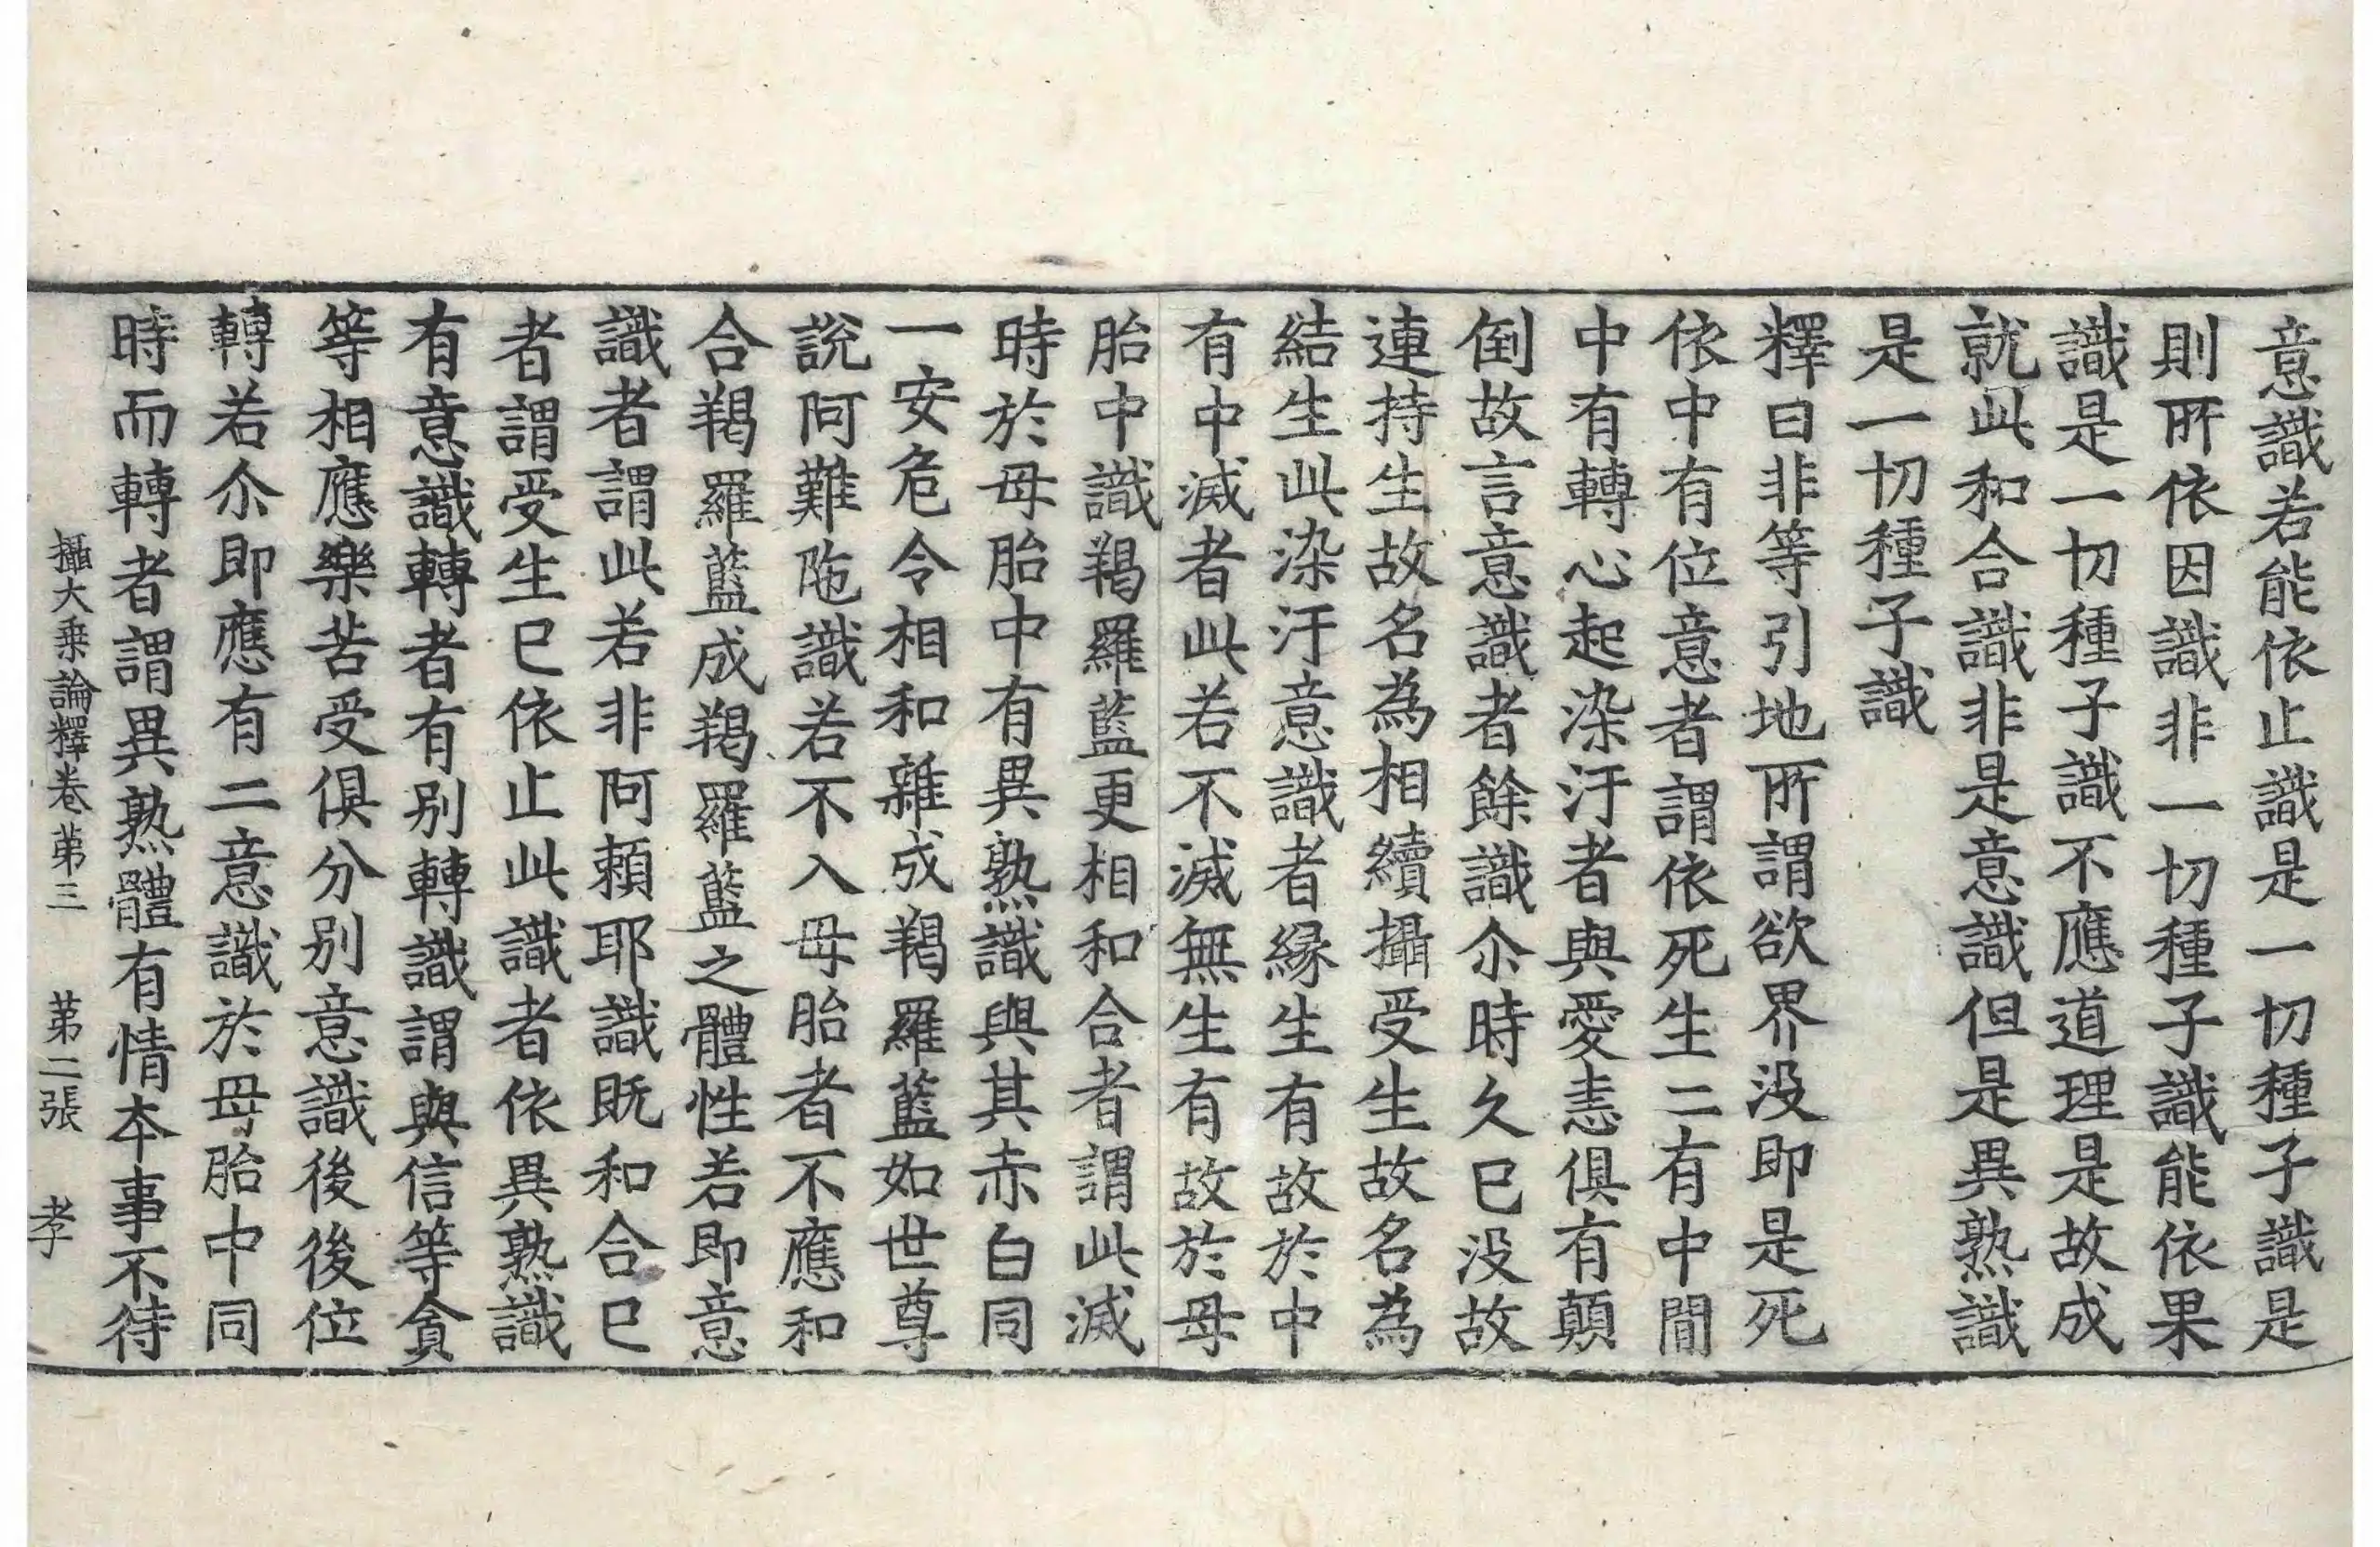 意識若能依止識是一切種子識是
則所依因識非一切種子識能依果
識是一切種子識不應道理是故成
就此和合識非是意識但是異熟識
是一切種子識
釋曰非等引地所謂欲界没即是死
依中有位意者謂依死生二有中間
中有轉心起染汙者與愛恚俱有顛
倒故言意識者餘識尒時久已没故
連持生故名為相續攝受生故名為
結生此染汙意識者緣生有故於中
有中滅者此若不滅無生有故於母
胎中識羯羅藍更相和合者謂此滅
時於母胎中有異熟識與其赤白同
一安危令相和雜成羯羅藍如世尊
說阿難陁識若不入母胎者不應和
合羯羅藍成羯羅藍之體性若即意
識者謂此若非阿賴耶識既和合已
者謂受生已依止此識者依異熟識
有意識轉者有別轉識謂與信等貪
等相應樂苦受俱分別意識後後位
轉若尒即應有二意識於母胎中同
時而轉者謂異熟體有情夲事不待
攝大乗論釋卷苐三　苐二張　孝